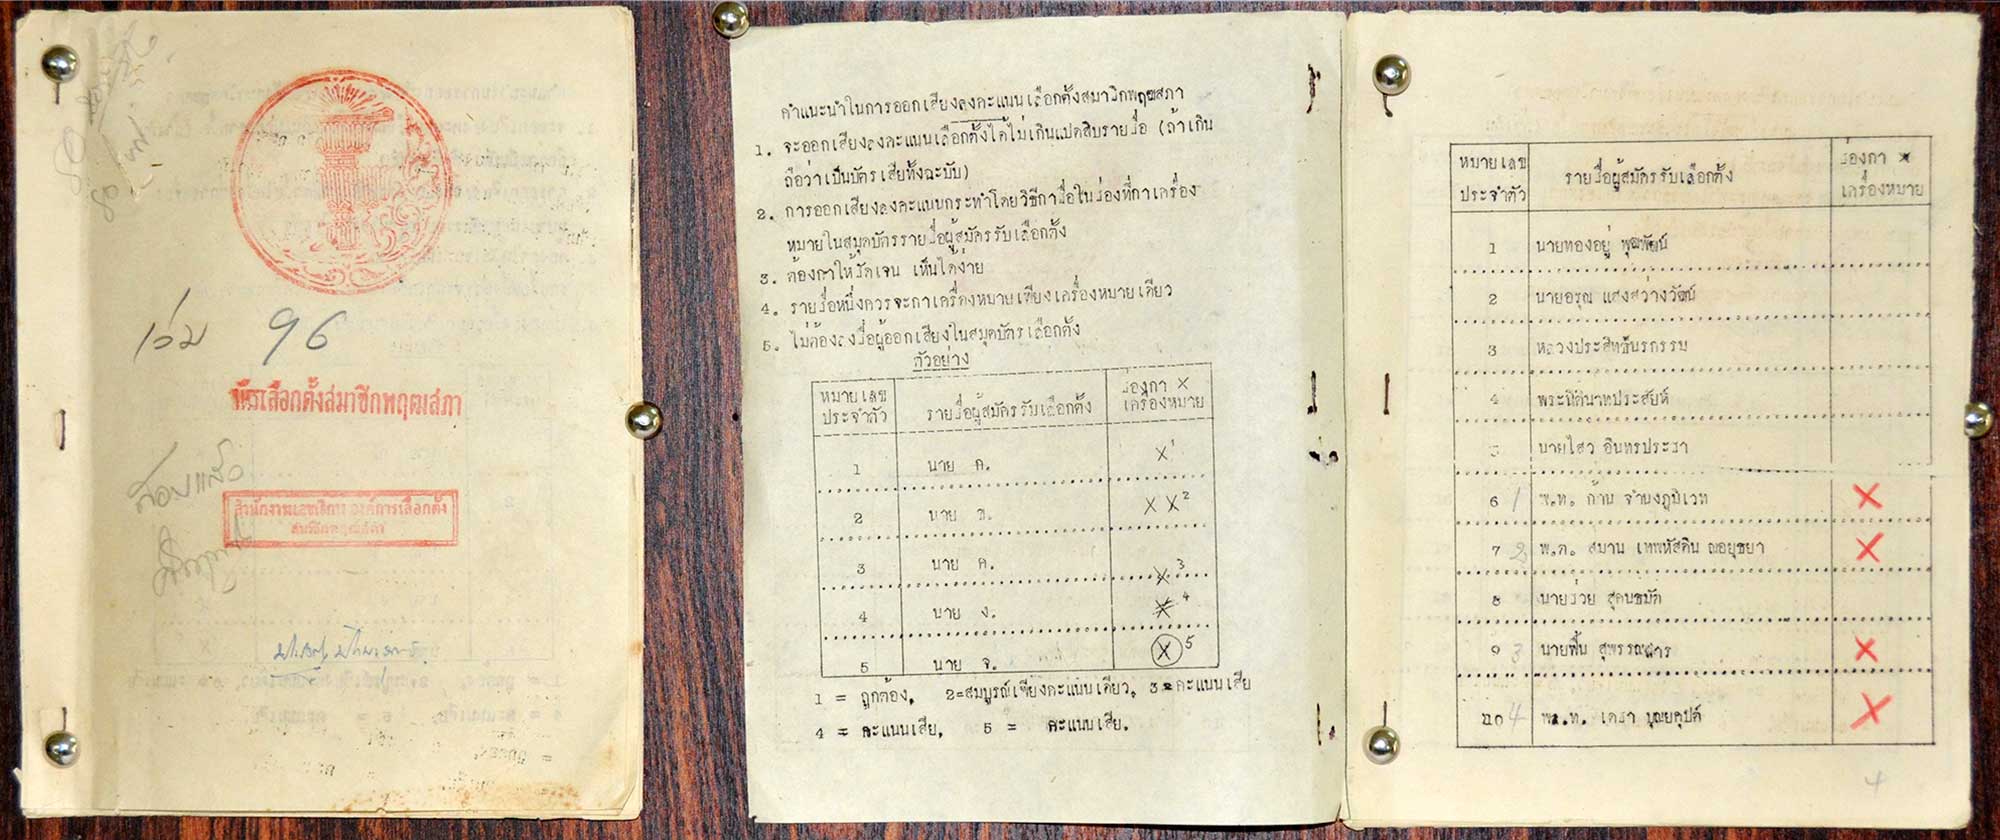 เล่ม 96
บัตรเลือกตั้งสมาชิกพฤฒสภา
สอบแล้ว
สำนักงานเลขาธิการ องค์การเลือกตั้ง
สมาชิกพฤฒสภา
คำแนะนำในการออกเสียงลงคะแนนเลือกตั้งสมาชิกพฤฒสภา
1. จะออกเสียงลงคะแนนเลือกตั้งได้ไม่เกินแปดสิบรายชื่อ (ถ้าเกิน
ถือว่าเป็นบัตรเสียทั้งฉะบับ)
2. การออกเสียงลงคะแนนกระทำโดยวิธีกาชื่อในช่องที่กาเครื่อง
หมายในสมุดบัตรรายชื่อผู้สมัครรับเลือกตั้ง
3. ต้องกาให้ชัดเจน เห็นได้ง่าย
4. รายชื่อหนึ่งควรจะกาเครื่องหมายเพียงเครื่องหมายเดียว
5. ไม่ต้องลงชื่อผู้ออกเสียงในสมุดบัตรเลือกตั้ง
ตัวอย่าง
หมายเลข
ประจำตัว
รายชื่อผู้สมัครรับเลือกตั้ง
ช่องกา ×
เครื่องหมาย
1 นาย ก. × 1
2 นาย ข. × × 2
3 นาย ค. × 3
4 นาย ง. × 4
5 นาย จ. × 5
1 = ถูกต้อง, 2=สมบูรณ์เพียงคะแนนเดียว, 3 =คะแนนเสีย
4 = คะแนนเสีย, 5 = คะแนนเสีย.
หมายเลข
ประจำตัว
รายชื่อผู้สมัครรับเลือกตั้ง
ช่องกา ×
เครื่องหมาย
1 นายทองอยู่ พุฒพัฒน์
2 นายอรุณ แสงสว่างวัฒน์
3 หลวงประสิทธิ์นรกรรม
4 พระนิตินาทประสัยห์
5 นายไสว อินทรประชา
6 1 พ.ท. ก้าน จำนงภูมิเวท ×
7 2 พ.ต. สมาน เทพหัสดิน ณอยุธยา ×
8 นายช่วย สุคนธมัต
9 3 นายฟื้น สุพรรณสาร ×
10 4 พล.ท. เดชา บุณยคุปต์ ×
4